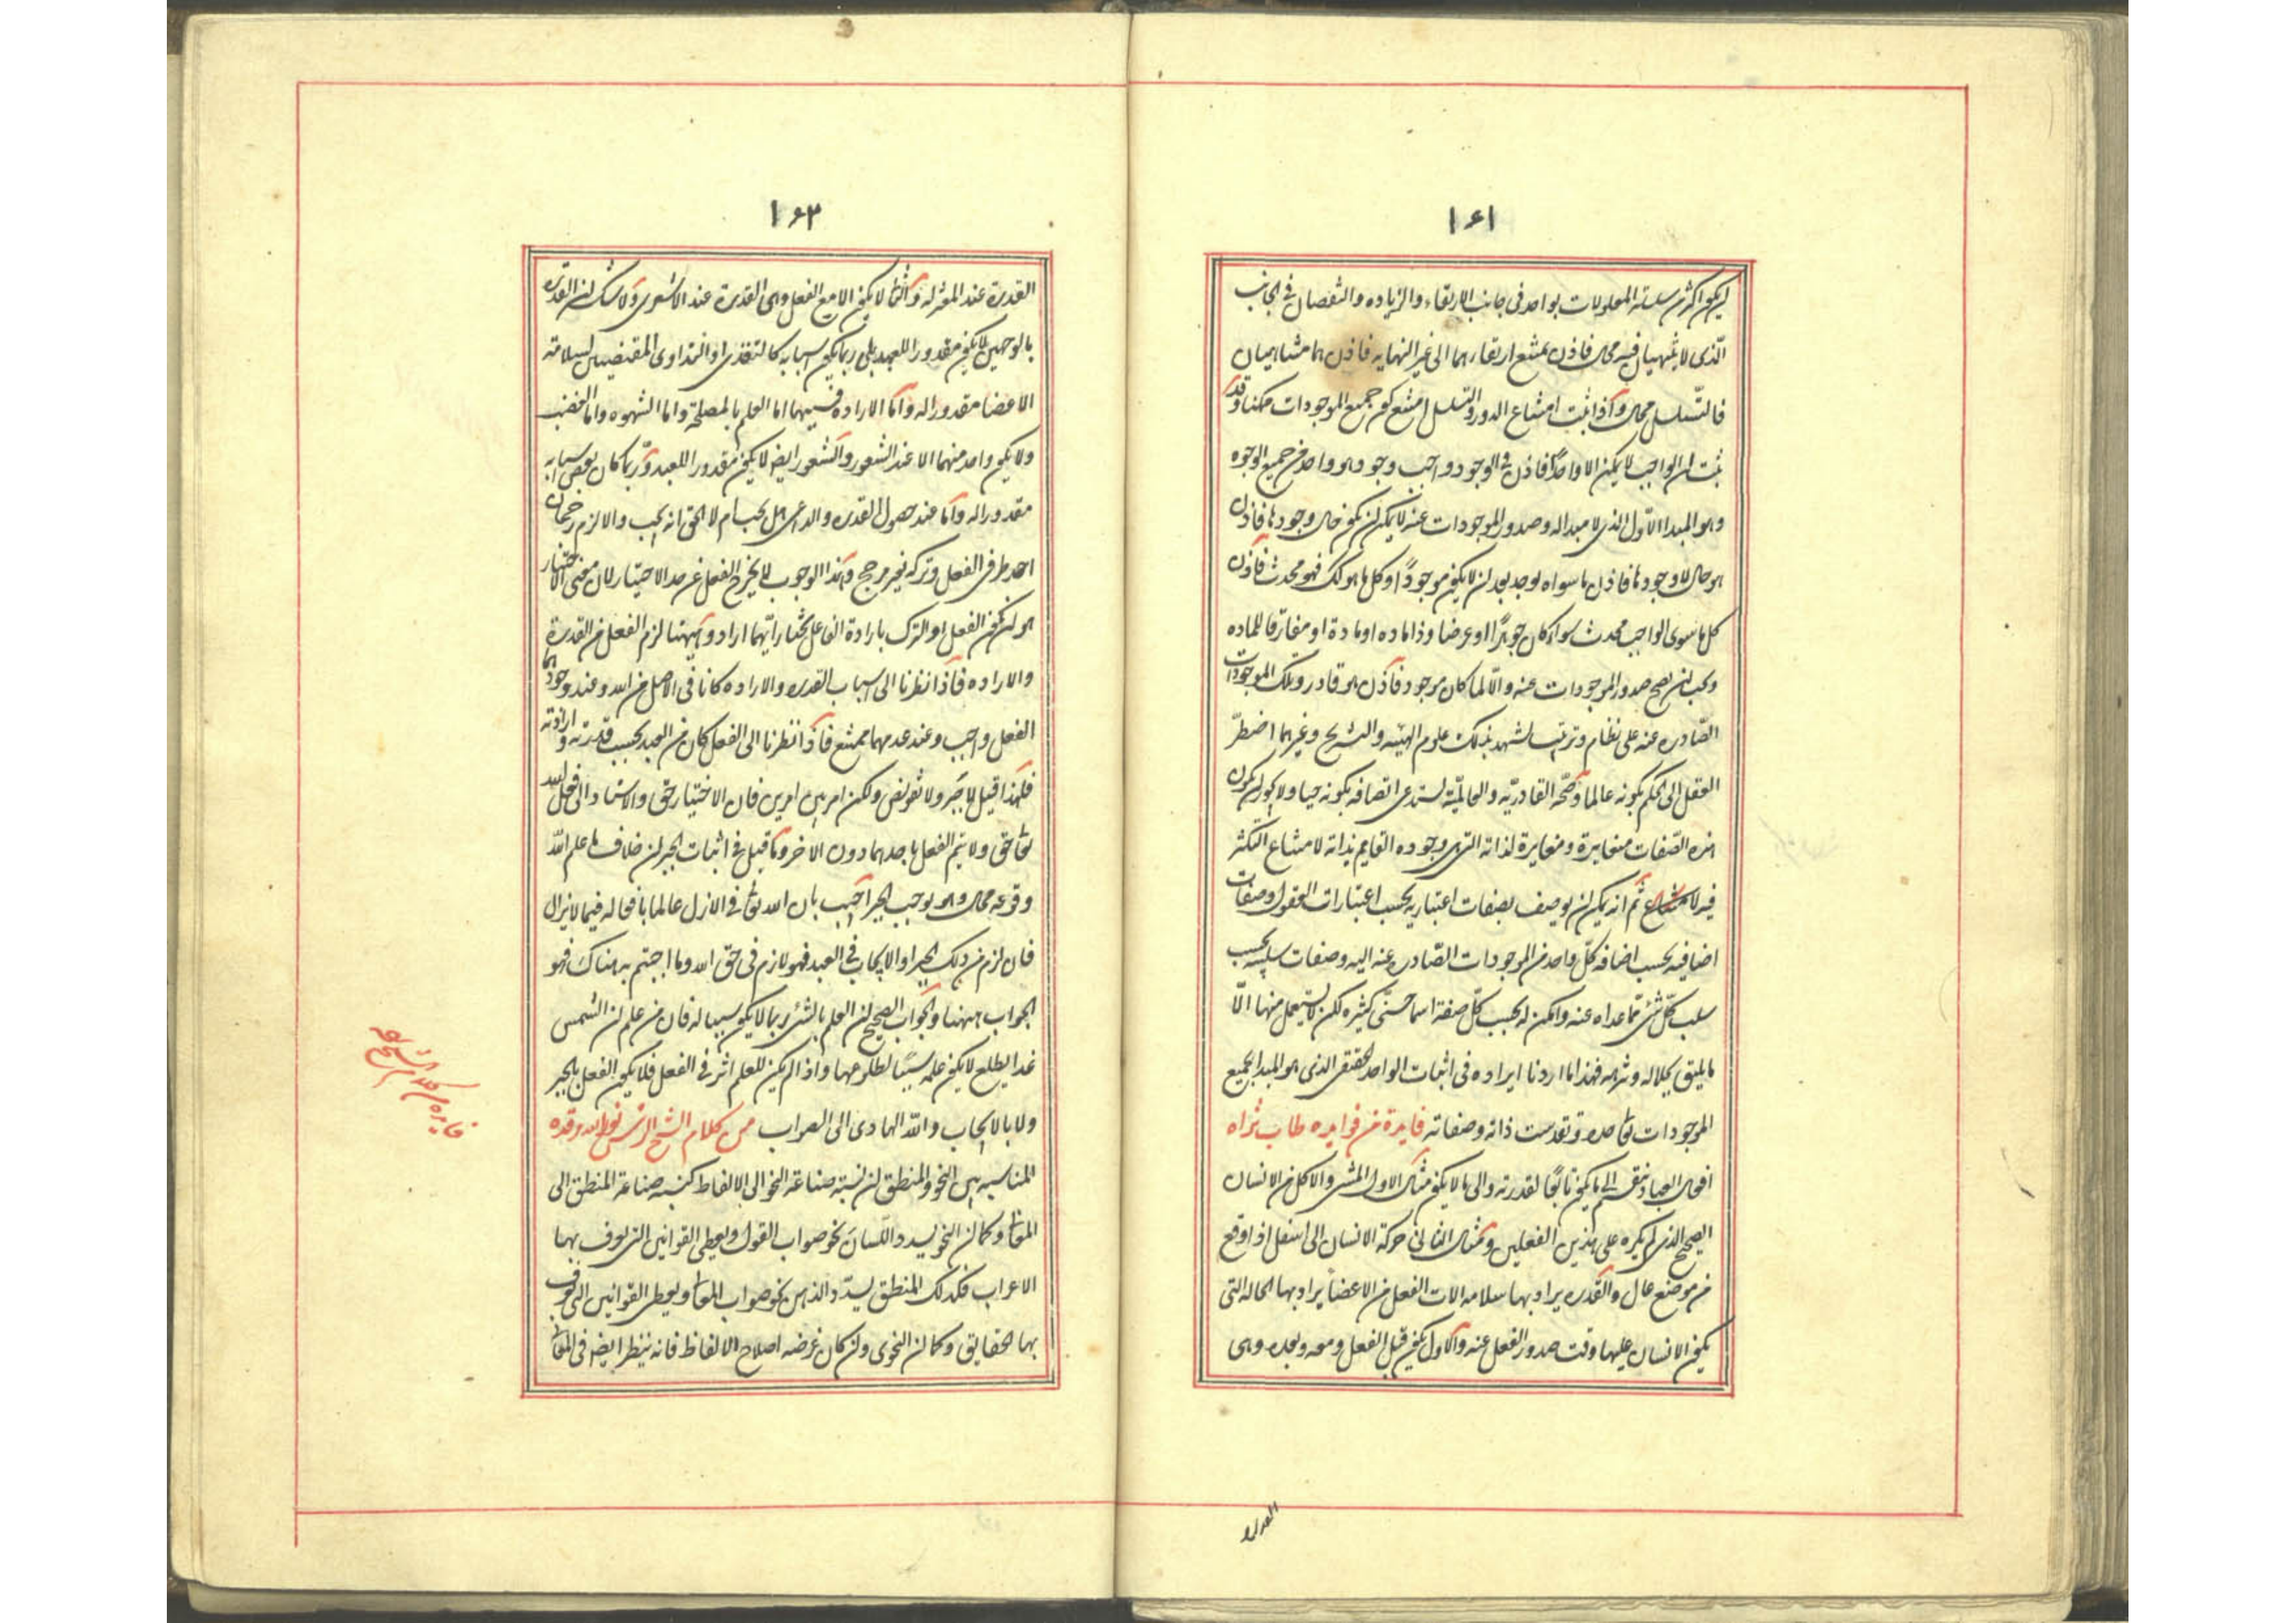 ١٦١
لن يكون اكثر من سلسلة المعلولات بواحد فى جانب الارتقاء والزياده والنقصان فى الجانب
الّذى لا يتناهيان فيه محال فاذن يمتنع ارتقاءهما الى غير النهايه فاذن هما متناهيان
فالتّسلسل محال واذا ثبت امتناع الدور والتسلسل امتنع كون جميع الموجودات ممكنا وقد
ثبت ان الواجب لا يكون الا واحدًا فاذن فى الوجود واجب وجود هو واحد من جميع الوجوه
وهو المبدا الاوّل الذى لا مبدا له وصدور الموجودات عنه لا يمكن ان يكون حال وجودها فاذن
هو حال لا وجودها فاذن ما سواه يوجد بعد ان لا يكون موجودًا وكل ما هو كك فهو محدث فاذن
كل ما سوى الواجب محدث سواء كان جوهرًا او عرضا وذا ماده او مادة او مفارقا للماده
ويجب ان يصح صدور الموجودات عنه والّا لما كان موجود فاذن هو قادر وتلك الموجودات
الصّادره عنه على نظام وترتيب يشهد بذلك علوم الهيئه والتشريح وغيرهما اضطرّ
العقل الى الحكم بكونه عالما وصحّه القادريّه والعالميّة يستدعى اتصافه بكونه حيا ولا يجوز ان يكون
هذه الصّفات متغايرة ومغايرة لذاته التى وجوده القايم بذاته لامتناع التكثر
فيه ثم انه يمكن ان يوصف بصفات اعتباريه بحسب اعتبارات العقول وصفات
اضافيه بحسب اضافه كلّ واحد من الموجودات الصّادره عنه اليه وصفات سلبيه بحسب
سلب كلّ شئ مّما عداه عنه وامكن له بحسب كلّ صفة اسما حسنى كثيره لكن لا يستعمل منها الّا
ما يليق بجلاله وتنزهه فهذا ما اردنا ايراده فى اثبات الواحد الحقيقى الذى هو المبدا لجميع
الموجودات تعالى جده وتقدست ذاته وصفاته فايدة من فوايده طاب ثراه
افعال العباد ينقسم الى ما يكون تابعًا لقدرته والى ما لا يكون مثال الاول المشى والاكل من الانسان
الصحيح الذى لم يكره على هذين الفعلين ومثال الثانى حركة الانسان الى اسفل اذا وقع
من موضع عال والقدره يراد بها سلامه الات الفعل من الاعضا ويراد بها الحاله التى
يكون الانسان عليها وقت صدور الفعل عنه والاول يكون قبل الفعل ومعه وبعده وهى
١٦٣
القدرة عند المعتزله والثانى لا يكون الا مع الفعل وهى القدرة عند الاشعرى ولا شك ان القدره
بالوجهين لا يكون مقدورا للعبد بلى ربما يكون اسبابه كالتغذى او التداوى المقتضيين لسلامه
الاعضا مقدورا له وامّا الاراده فسببها اما العلم بالمصلحة واما الشهوه واما الغضب
ولا يكون واحد منهما الا عند الشعور والشعور ايضا لا يكون مقدورا للعبد وربما كان بعض اسبابه
مقدورا له وامّا عند حصول القدره والداعى هل يجب ام لا الحق انه يجب والا لزم رجحان
احد طرفى الفعل وتركه بغير مرجح وهذا الوجوب لا يخرج الفعل عن حد الاختيار لان معنى الاختيار
هو ان يكون الفعل او الترك بارادة الفاعل يختار ايّهما اراد وههنا لزم الفعل من القدرة
والاراده فاذا نظرنا الى اسباب القدره والاراده كانا فى الاصل من الله وعند وجودهما
الفعل واجب وعند عدمهما ممتنع فاذا نظرنا الى الفعل كان من العبد بحسب قدرته وارادته
فلهذا قيل لا جبر ولا تفويض ولكن امر بين امرين فان الاختيار حق والاستناد الى فعل الله
تعالى حق ولا يتم الفعل باحدهما دون الاخر وما قيل فى اثبات الجبر ان خلاف ما علم اللّه
وقوعه محال وهو يوجب الجبر اجيب بان الله تعالى فى الازل عالما بافعاله فيما لا يزال
فان لزم من ذلك الجبر او الايجاب فى العبد فهو لازم فى حق الله وما اجبتم به هناك فهو
الجواب ههنا والجواب الصحيح ان العلم بالشئ ربما لا يكون سببا له فان من علم ان الشمس
غدا يطلع لا يكون علمه سببًا لطلوعها واذا لم يكن للعلم اثر فى الفعل فلا يكون الفعل بالجبر
ولا بالايجاب واللّه الهادى الى الصواب من كلام الشيخ الرئيس نور الله مرقده
المناسبه بين النحو والمنطق ان نسبة صناعة النحو الى الالفاظ كنسبه صناعة المنطق الى
المعانى وكما ان النحو يسدد اللّسان نحو صواب القول ويعطى القوانين التى يعرف بها
الاعراب فكذلك المنطق يسدّد الذهن نحو صواب المعانى ويعطى القوانين التى يعرف
بها الحقايق وكما ان النحوى وان كان غرضه اصلاح الالفاظ فانه ينظر ايضا فى المعانى